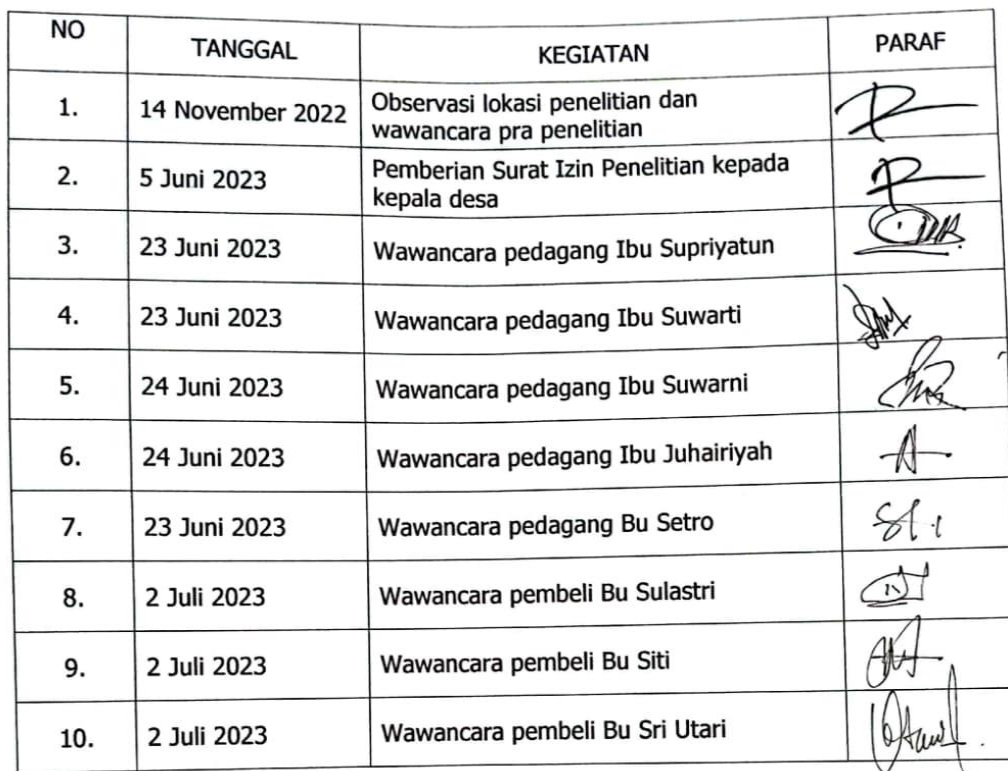 NO TANGGAL KEGIATAN PARAF
1. 14 November 2022 Observasi lokasi penelitian dan
wawancara pra penelitian
2. 5 Juni 2023 Pemberian Surat Izin Penelitian kepada
kepala desa
3. 23 Juni 2023 Wawancara pedagang Ibu Supriyatun
4. 23 Juni 2023 Wawancara pedagang Ibu Suwarti
5. 24 Juni 2023 Wawancara pedagang Ibu Suwarni
6. 24 Juni 2023 Wawancara pedagang Ibu Juhairiyah
7. 23 Juni 2023 Wawancara pedagang Bu Setro
8. 2 Juli 2023 Wawancara pembeli Bu Sulastri
9. 2 Juli 2023 Wawancara pembeli Bu Siti
10. 2 Juli 2023 Wawancara pembeli Bu Sri Utari